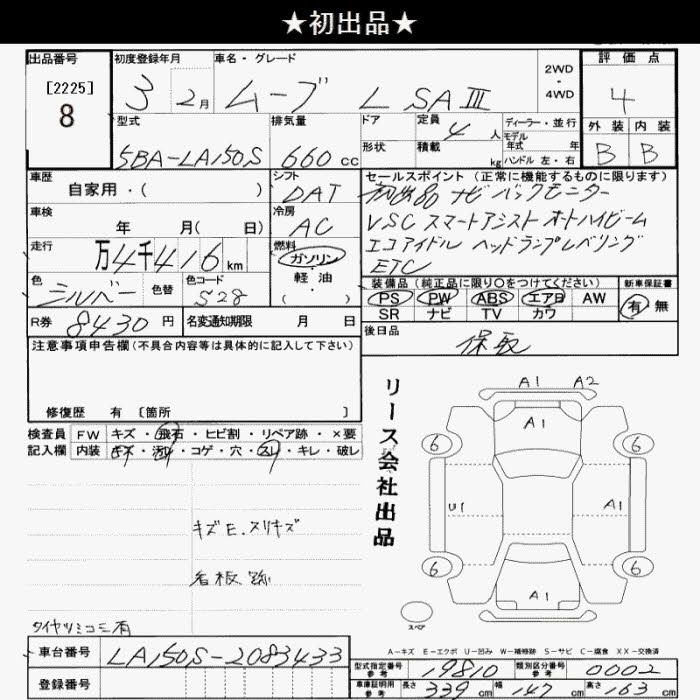 ★初出品★
出品番号
[2225]
8
初度登録年月
3 2月
車名・グレード
ムーブ L SAⅢ
2WD
・
4WD
評価点
4
外装 内装
B B
型式
5BA-LA150S
排気量
660 cc
ドア
形状
定員
4 人
積載
kg
ディーラー・並行
モデル年式 年式
ハンドル 左・右
車歴
自家用・( )
シフト
DAT
車検
年 月( 日)
冷房
AC
走行
万4千416 km
燃料
ガソリン
軽・油
( ・ )
色
シルバー
色替
色コード
S28
R券 8430 円
名変通知期限 月 日
セールスポイント (正常に機能するものに限ります)
初出品 ナビ バックモニター
VSC スマートアシスト オートハイビーム
エコアイドル ヘッドランプレベリング
ETC
装備品 (純正品に限り〇をつけてください)
PS PW ABS エアB AW
SR ナビ TV カワ
新車保証書
有 無
後日品
保取
注意事項申告欄(不具合内容等は具体的に記入して下さい)
修復歴 有 [箇所 ]
検査員
記入欄
FW キズ・飛石・ヒビ割・リペア跡・×要
内装 キズ・汚れ・コゲ・穴・スレ・キレ・破レ
キズE.スリキズ
看板跡
タイヤツミコミ有
リース会社出品
A1 A2
A1
6 6
U1 A1
6 6
A1
スペア
A-キズ E-エクボ U-凹み W-補修跡 S-サビ C-腐食 XX-交換済
車台番号
LA150S-2083433
登録番号
型式指定番号
参考
19810
類別区分番号
参考
0002
車庫証明用
参考
長さ 339 cm 幅 147 cm 高さ 163 cm